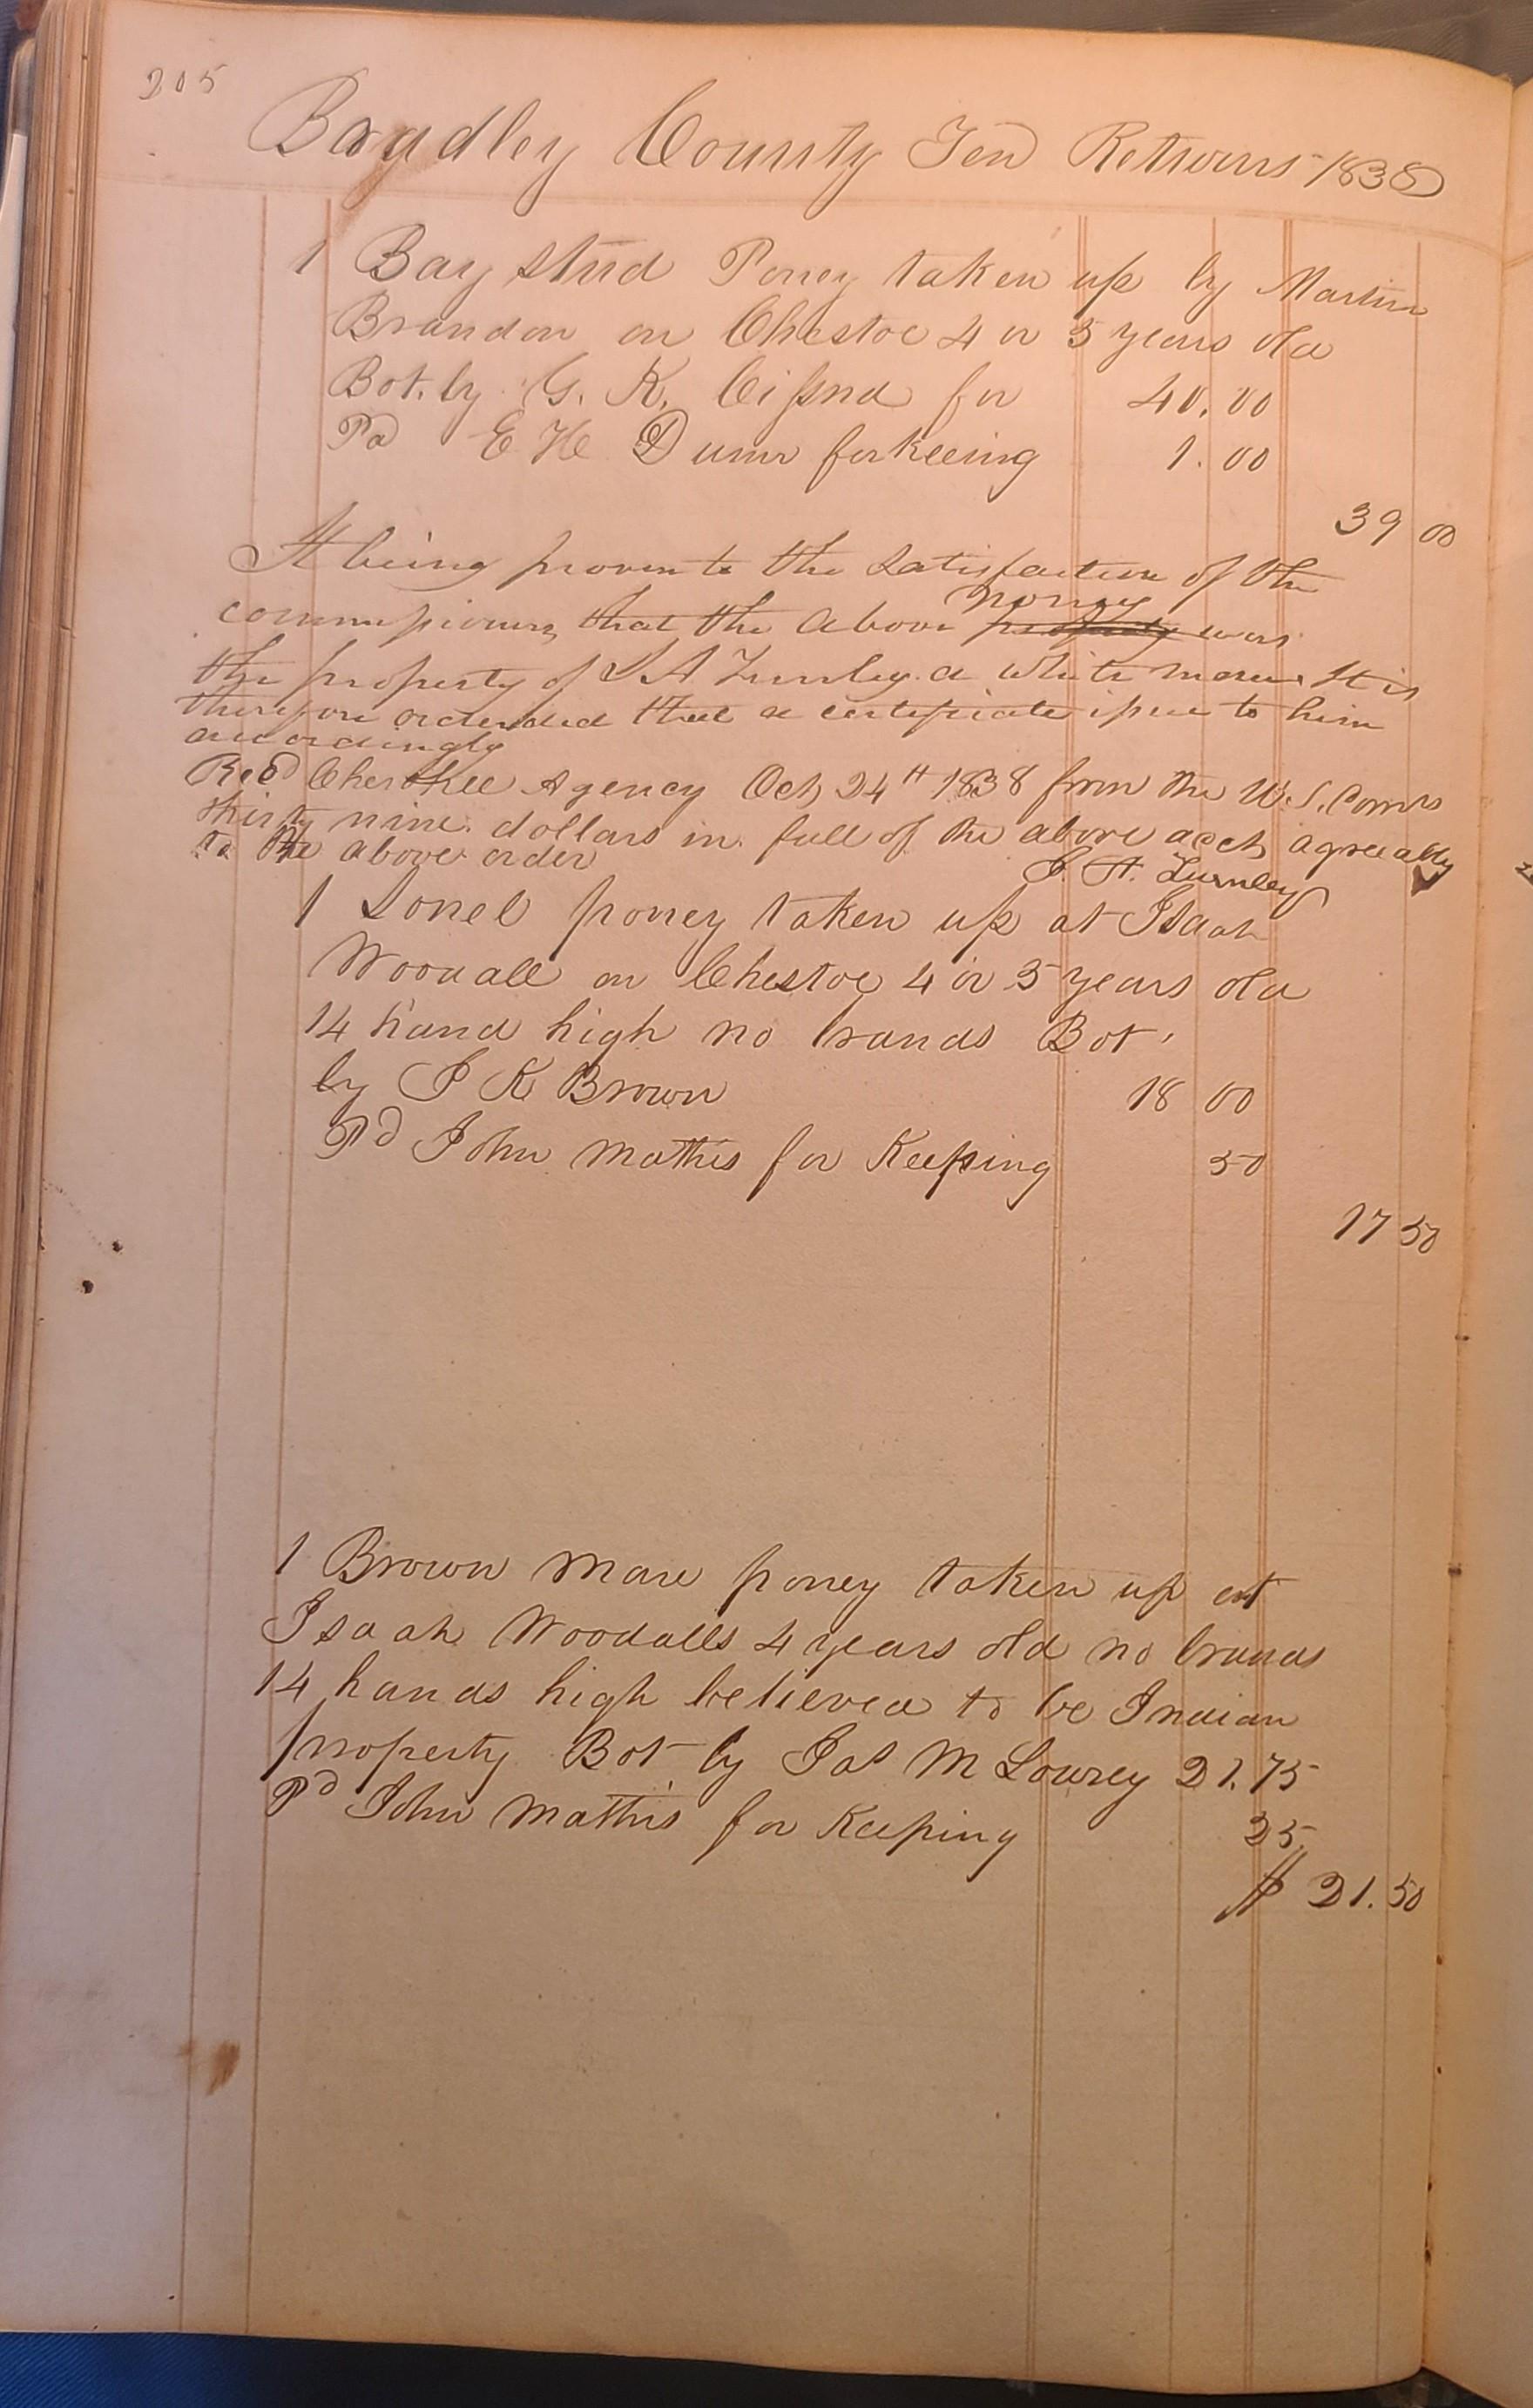 205
Bradley County Ten Returns 1838
1 Bay stud Poney taken up by Martin
Brandon on Chestoe 4 or 5 years old
Bot. by G. K. Cissna for 40.00
Pd E H Dunn for keeing 1.00
39 00
It being proven to the satisfaction of the
poney
commissioners that the above property was
the property of J A Turnley a white man. It is
therefore ordended that a certificate issue to him
accordingly
Recd Cherokee Agency Oct 24th 1838 from the U.S. Comrs
thirty nine dollars in full of the above acct agreeably
to the above order
J. A. Turnley
1 Sorrel poney taken up at Isaah
Woodall on Chestoe 4 or 5 years old
14 hand high no brands Bot.
by J K Brown 18 00
Pd John Mathis for Keeping 50
17 50
1 Brown mare poney taken up at
Isaah Woodalls 4 years old no brands
14 hands high believed to be Indian
property Bot by Jas M Lowrey 21.75
Pd John Mathis for Keeping 25
$ 21.50